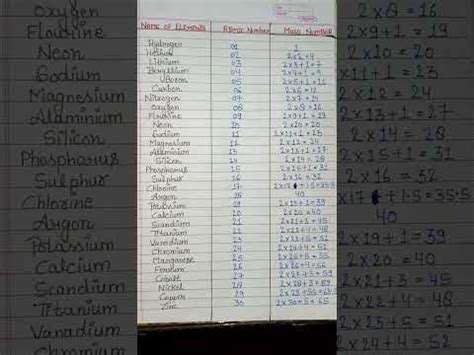 Oxygen
Flourine
Neon
Sodium
Magnesium
Aluminium
Silicon
Phosphorus
Sulphur
Chlorine
Argon
Potassium
Calcium
Scandium
Titanium
Vanadium
Chromium
Name of Elements Atomic Number Mass Number
Hydrogen 01 1
Helium 02 2×2=4
Lithium 03 2×3+1=7
Beryllium 04 2×4+1=9
Boron 05 2×5+1=11
Carbon 06 2×6=12
Nitrogen 07 2×7=14
Oxygen 08 2×8=16
Flourine 09 2×9+1=19
Neon 10 2×10=20
Sodium 11 2×11+1=23
Magnesium 12 2×12=24
Aluminium 13 2×13+1=27
Silicon 14 2×14=28
Phosphorus 15 2×15+1=31
Sulphur 16 2×16=32
Chlorine 17 2×17+1.5=35.5
Argon 18 40
Potassium 19 2×19+1=39
Calcium 20 2×20=40
Scandium 21 2×21+3=45
Titanium 22 2×22+4=48
Vanadium 23 2×23+5=51
Chromium 24 2×24+4=52
Manganese 25 2×25+5=55
Ferrum 26 2×26+4=56
Cobalt 27 2×27+5=59
Nickel 28 2×28+3=59
Copper 29
Zinc 30 2×30+5=65
2×8=16
2×9+1=19
2×10=20
2×11+1=23
2×12=24
2×13+1=27
2×14=28
2×15+1=31
2×16=32
×17+1.5=35.5
40
2×19+1=39
2×20=40
2×21+3=45
2×22+4=48
2×23+5=51
2×24+4=52